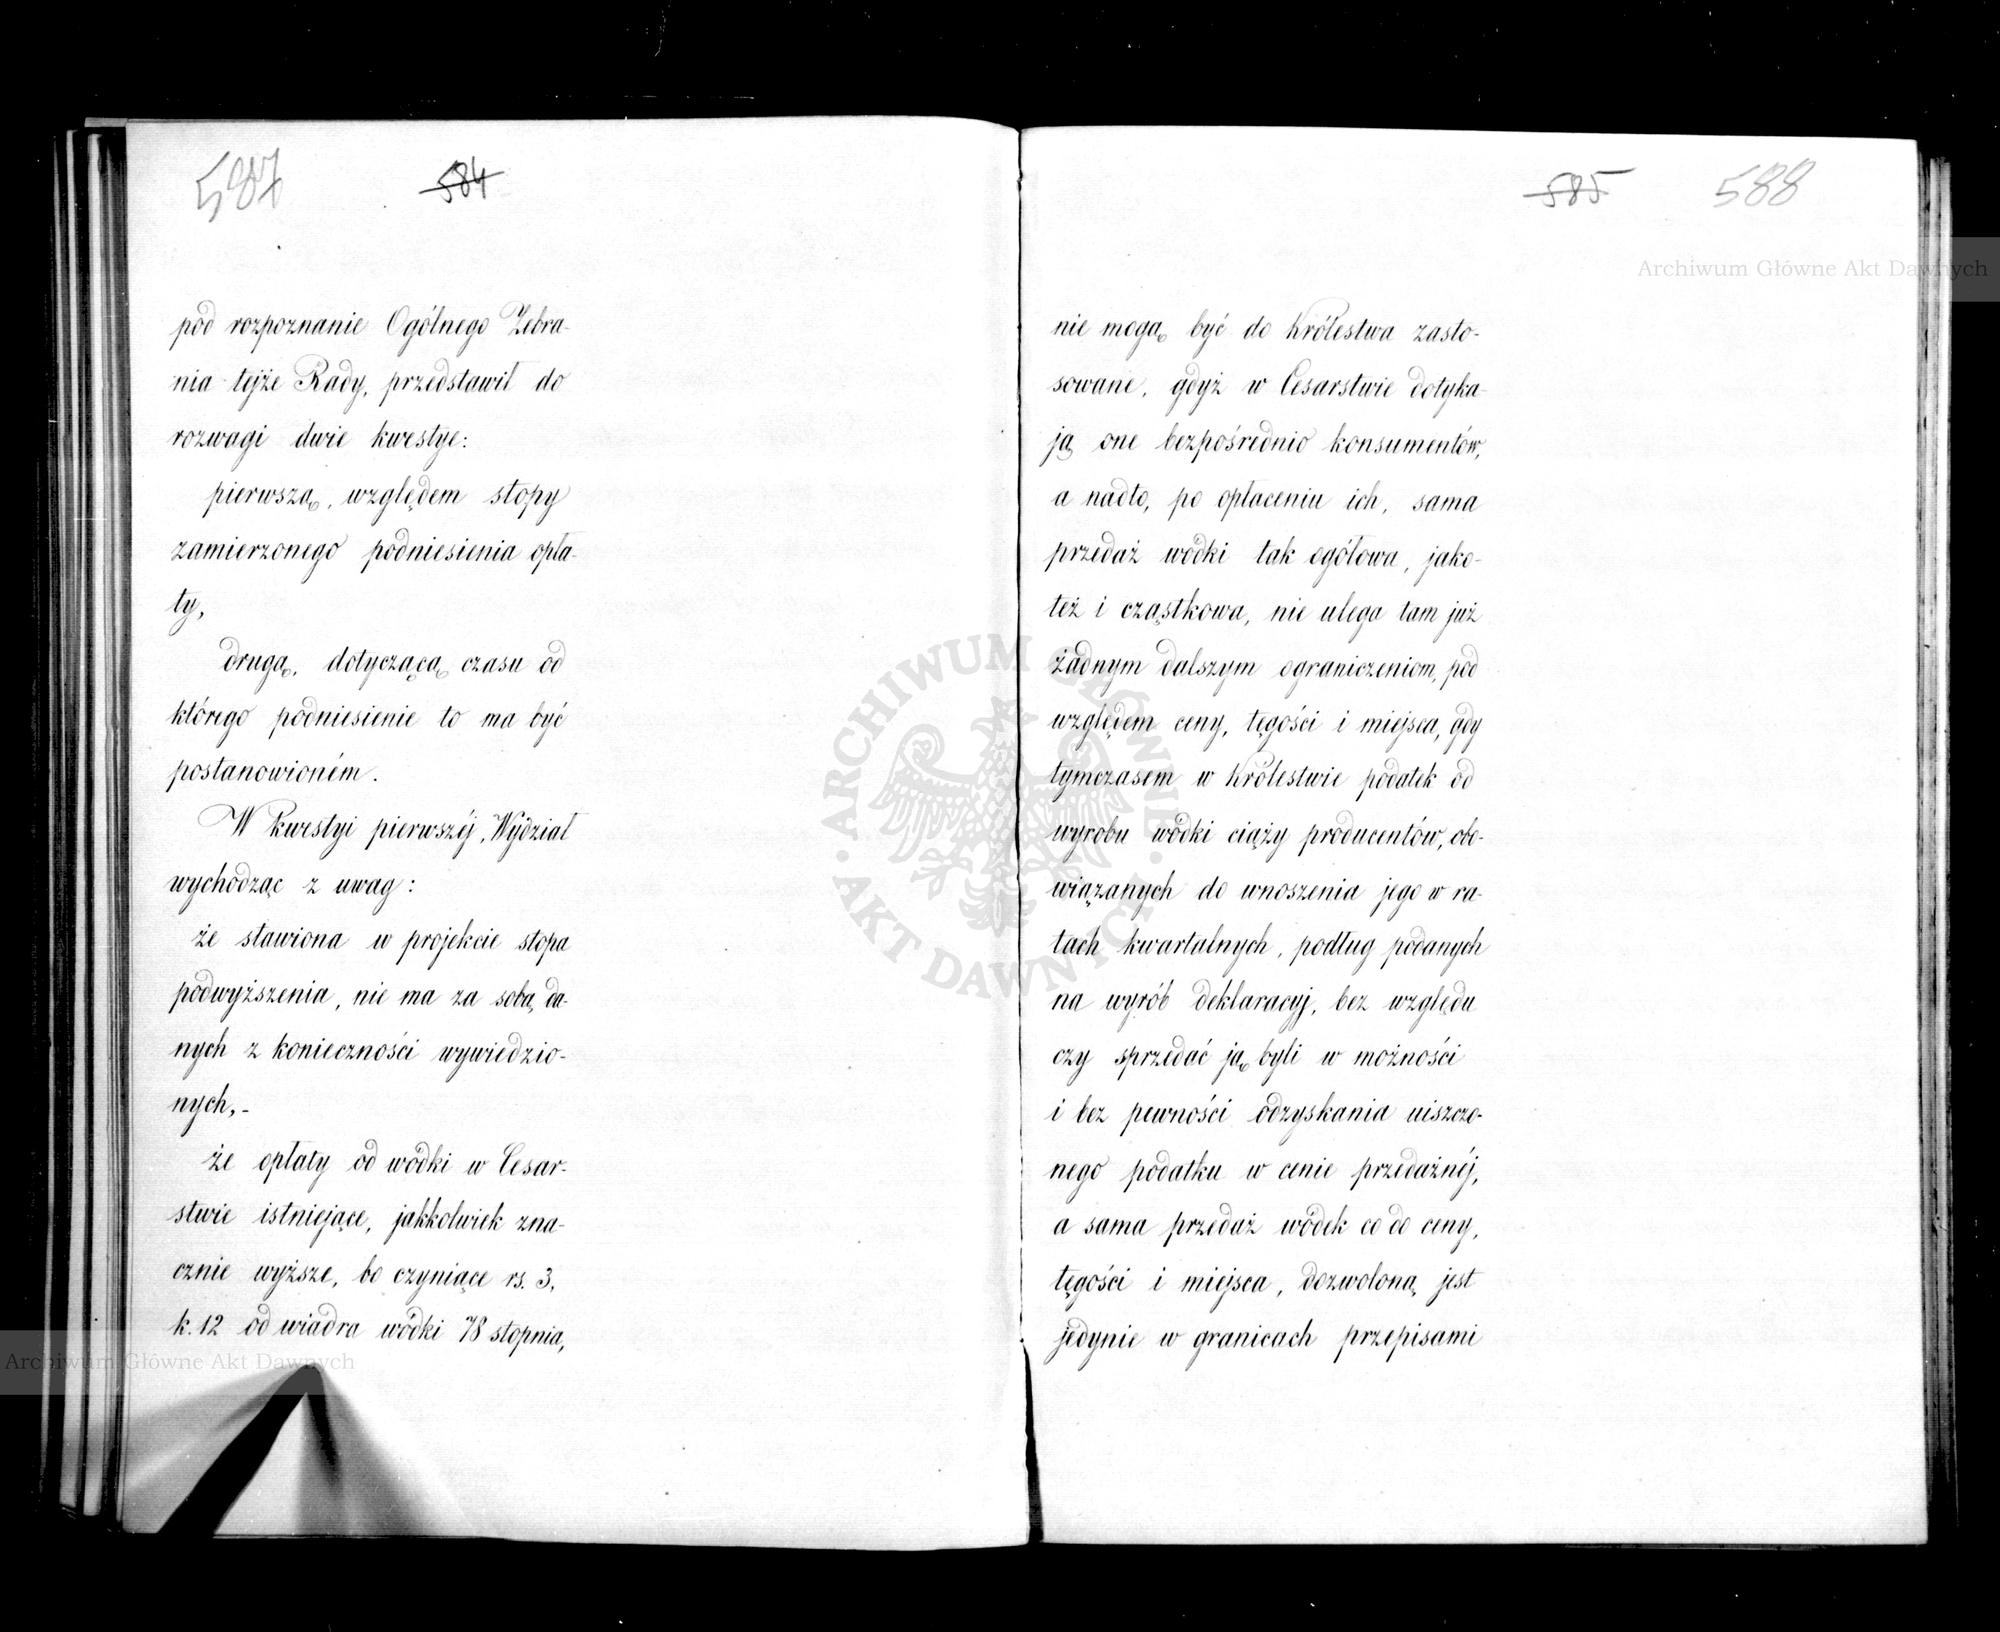 587 584
pod rozpoznanie Ogólnego Zebra-
nia tejże Rady, przedstawił do
rozwagi dwie kwestye:
pierwszą, względem stopy
zamierzonego podniesienia opła-
ty,
drugą, dotyczącą czasu od
którego podniesienie to ma być
postanowioném.
W kwestyi pierwszéj, Wydział
wychodząc z uwag:
że stawiona w projekcie stopa
podwyższenia, nie ma za sobą da-
nych z konieczności wywiedzio-
nych,-
że opłaty od wódki w Cesar-
stwie istniejące, jakkolwiek zna-
cznie wyższe, bo czyniące rs. 3,
k. 12 od wiadra wódki 78 stopnia,
585 588
nie mogą być do Królestwa zasto-
sowane, gdyż w Cesarstwie dotyka-
ją one bezpośrednio konsumentów,
a nadto, po opłaceniu ich, sama
przedaż wódki tak ogółowa, jako-
też i cząstkowa, nie ulega tam już
żadnym dalszym ograniczeniom, pod
względem ceny, tęgości i miejsca, gdy
tymczasem w Królestwie podatek od
wyrobu wódki ciąży producentów, obo-
wiązanych do wnoszenia jego w ra-
tach kwartalnych, podług podanych
na wyrób deklaracyj, bez względu
czy sprzedać ją byli w możności
i bez pewności odzyskania uiszczo-
nego podatku w cenie przedażnéj,
a sama przedaż wódek co do ceny,
tęgości i miejsca, dozwoloną jest
jedynie w granicach przepisami
Archiwum Główne Akt Dawnych
Archiwum Główne Akt Dawnych
ARCHIWUM GŁÓWNE
AKT DAWNYCH